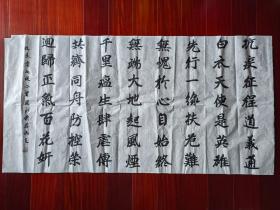 抗炎征程道義通
白衣天使是英雄
先行一線扶危難
無愧於心目始終
無端大地起風煙
千里瘟生肆虐傳
共濟同舟防控禦
迴歸正氣百花妍